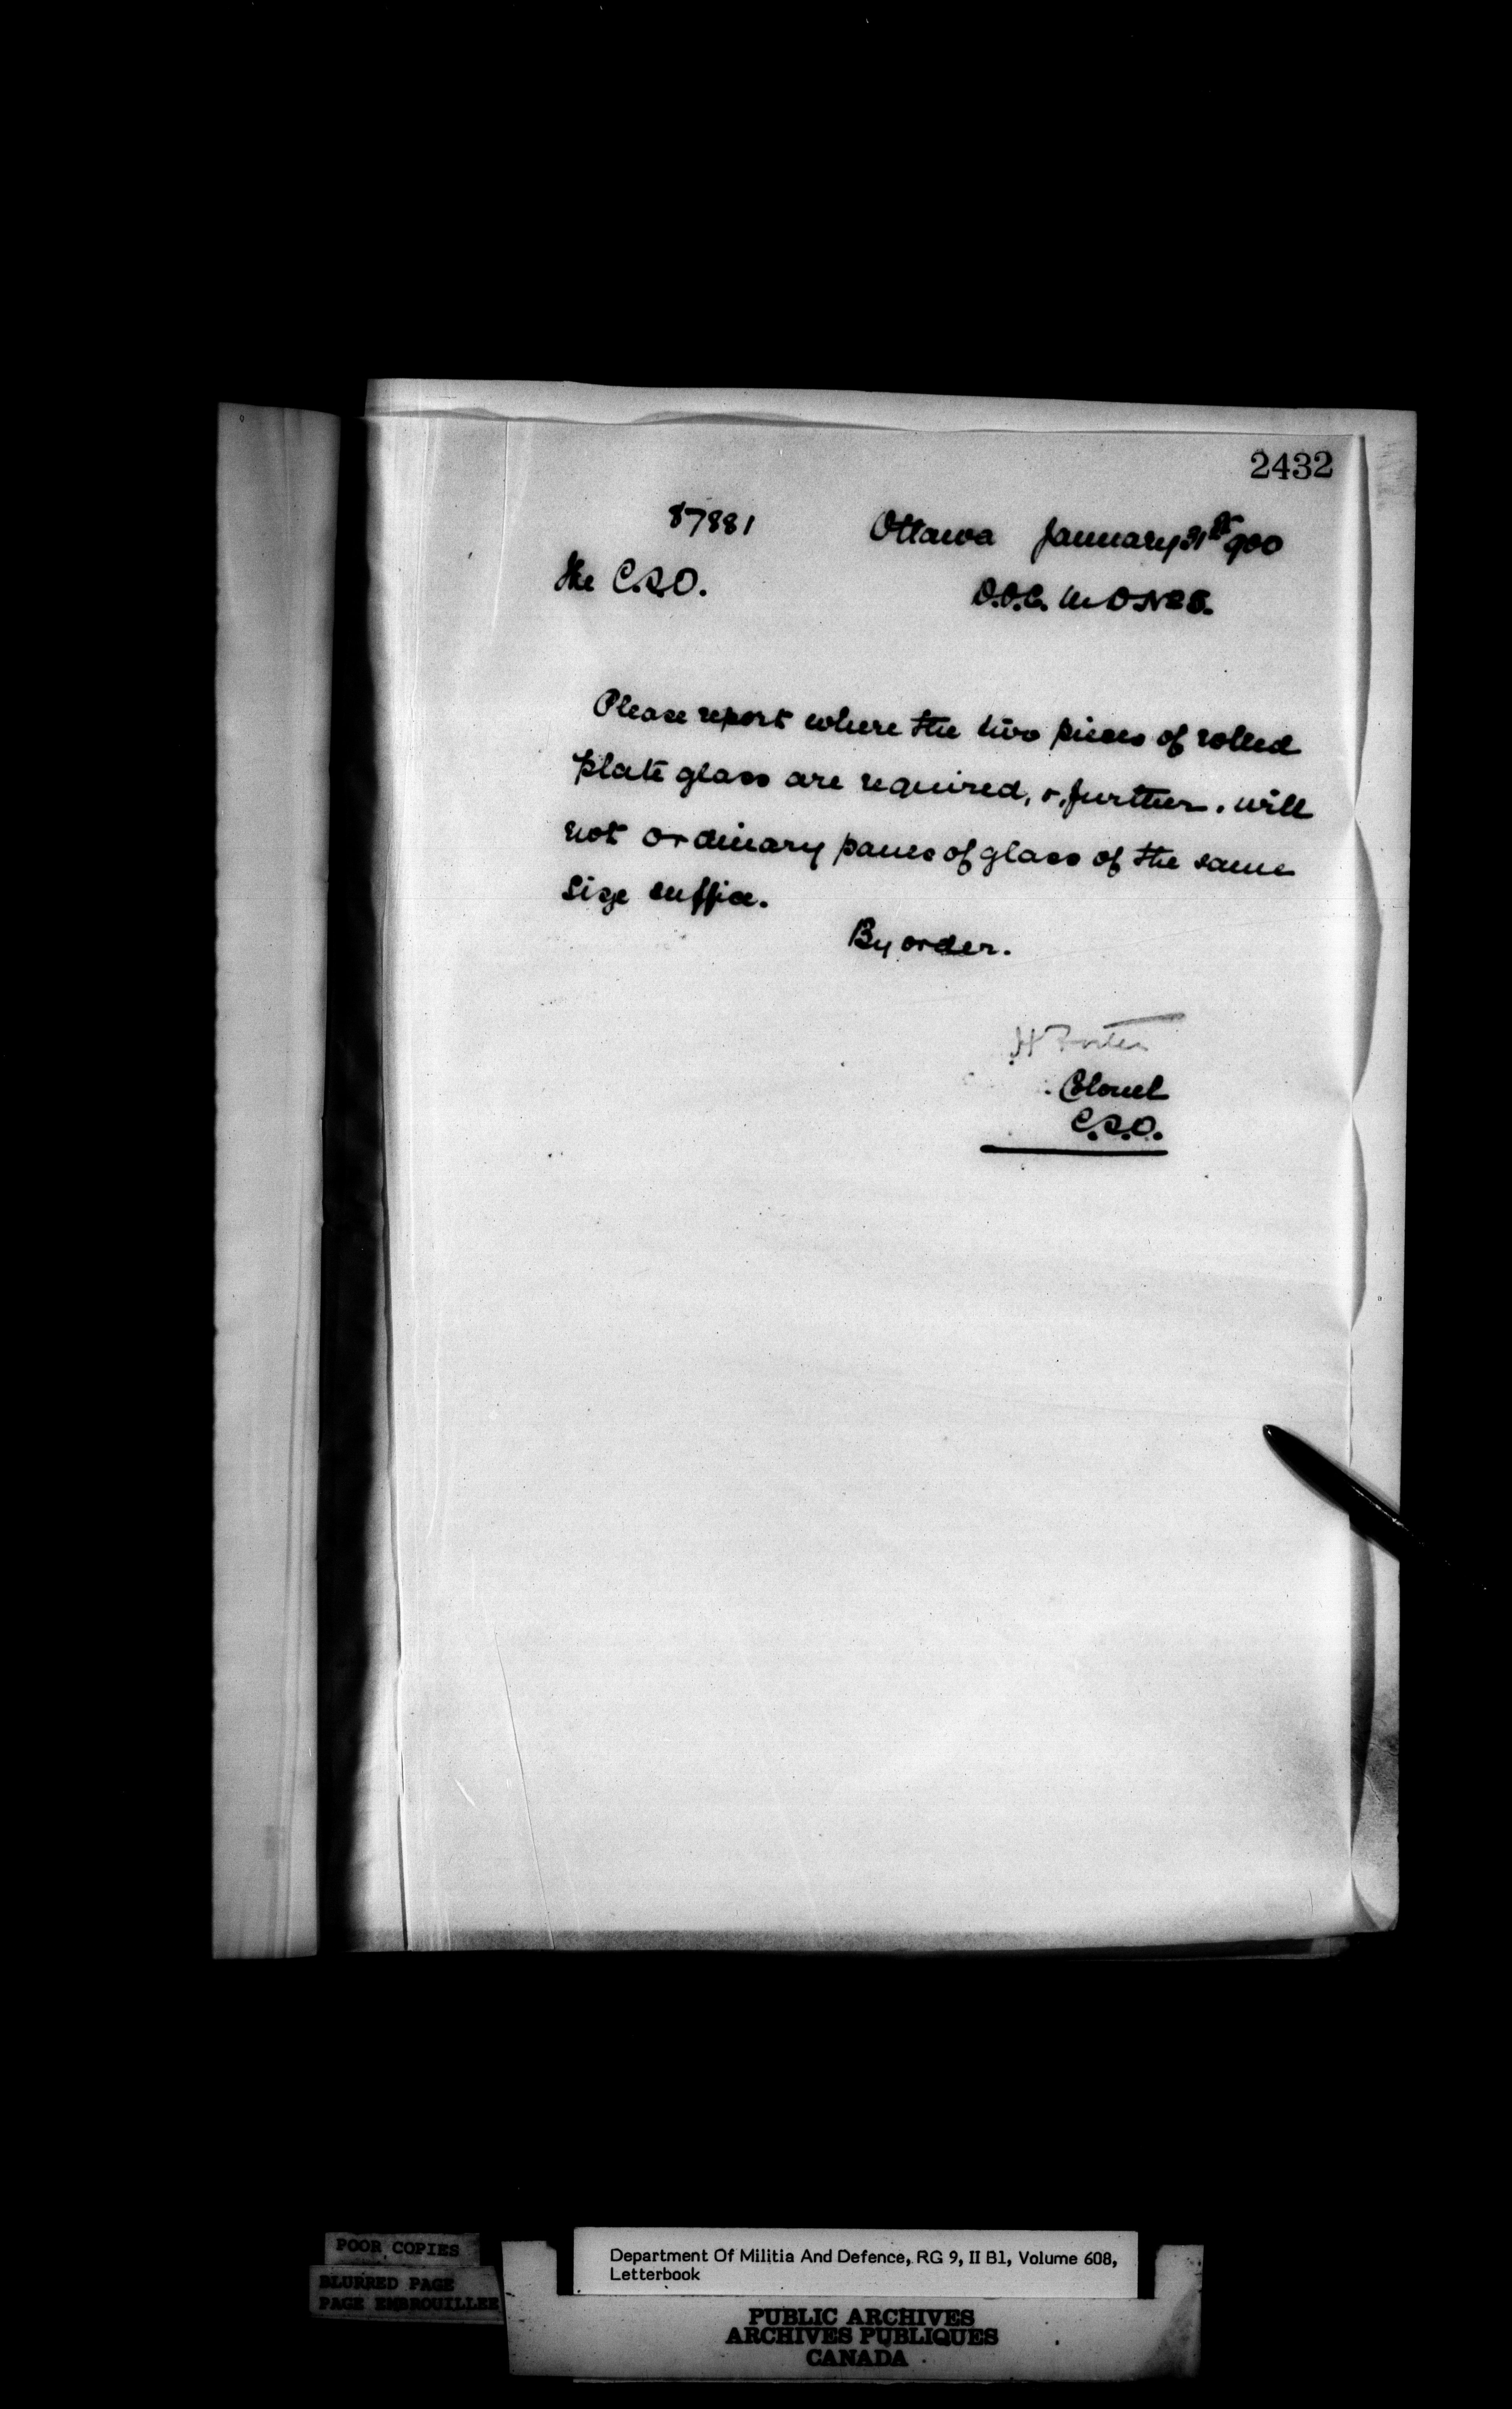 2432
87881 Ottawa January 31st 900
The C.S.O. D.O.C. M D No 5.
Please report where the two pieces of rolled
plate glass are required, &, further, will
not ordinary panes of glass of the same
size suffice.
By order.
H Foster
Colonel
C.S.O.
POOR COPIES
BLURRED PAGE
PAGE EMBROUILLEE
Department Of Militia And Defence, RG 9, II B1, Volume 608,
Letterbook
PUBLIC ARCHIVES
ARCHIVES PUBLIQUES
CANADA